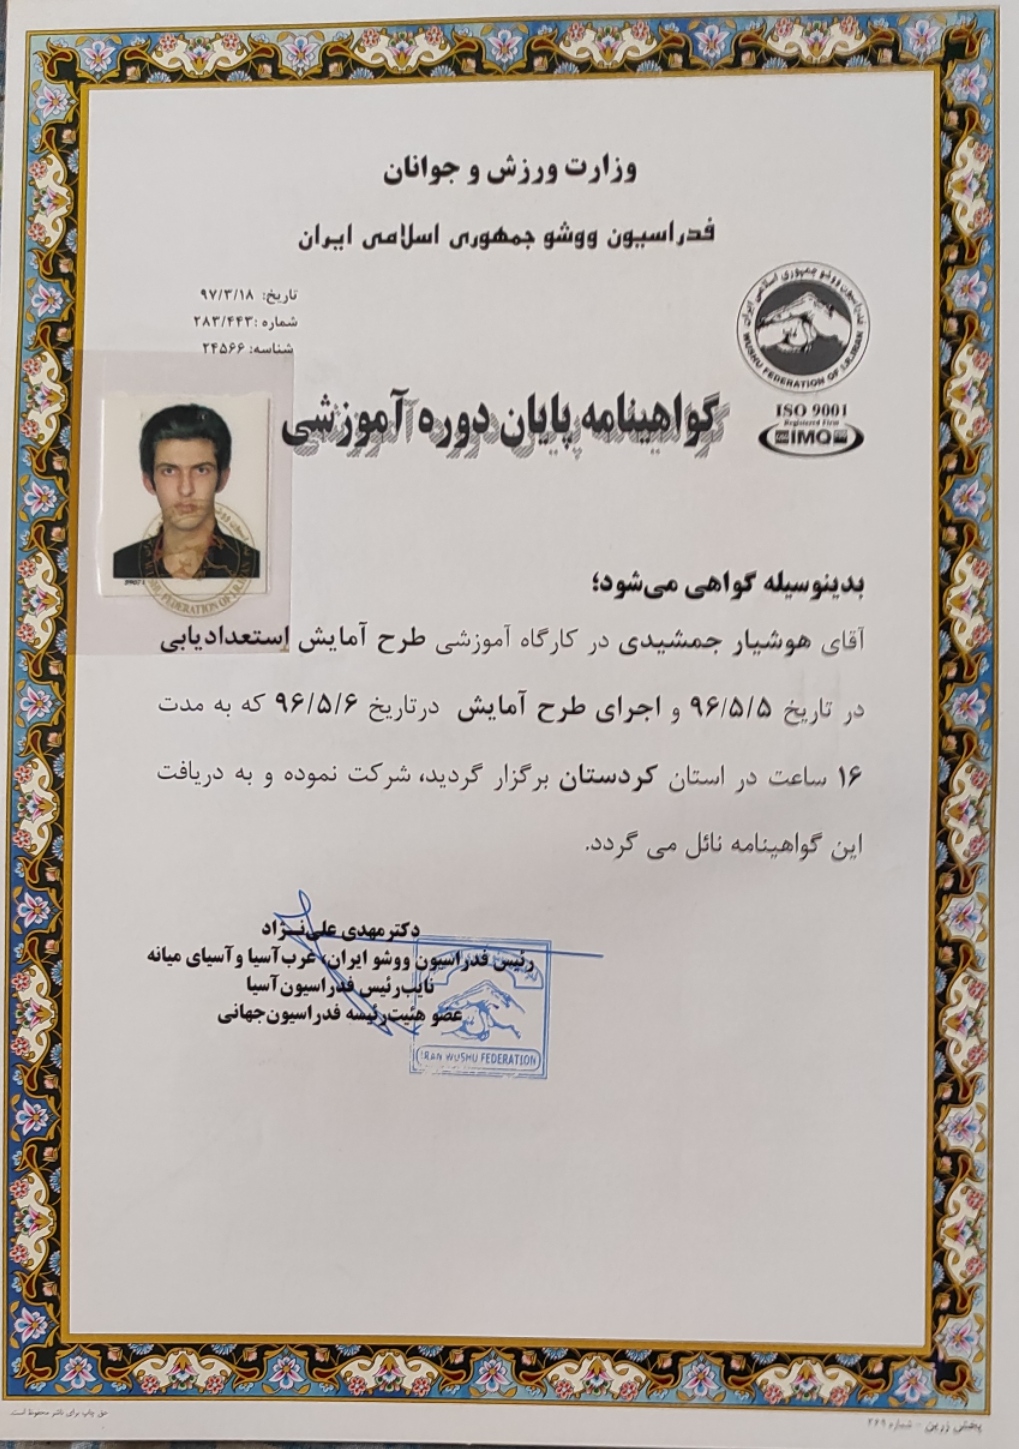 وزارت ورزش و جوانان
فدراسیون ووشو جمهوری اسلامی ایران
تاریخ: ۹۷/۳/۱۸
شماره :۲۸۳/۴۴۳
شناسه: ۲۴۵۶۶
فدراسیون ووشو جمهوری اسلامی ایران
WUSHU FEDERATION OF I.R.IRAN
ISO 9001
Registered Firm
IMQ
گواهینامه پایان دوره آموزشی
FEDERATION OF I.R.IRAN
بدینوسیله گواهی می‌شود؛
آقای هوشیار جمشیدی در کارگاه آموزشی طرح آمایش استعدادیابی
در تاریخ ۹۶/۵/۵ و اجرای طرح آمایش درتاریخ ۹۶/۵/۶ که به مدت
۱۶ ساعت در استان کردستان برگزار گردید، شرکت نموده و به دریافت
این گواهینامه نائل می گردد.
دکترمهدی علی‌نژاد
رئیس فدراسیون ووشو ایران، غرب‌آسیا وآسیای میانه
نایب‌رئیس فدراسیون‌آسیا
عضو هئیت‌رئیسه فدراسیون‌جهانی
IRAN WUSHU FEDERATION
حق چاپ برای ناشر محفوظ است.
پخش زرین - شماره ۲۶۹